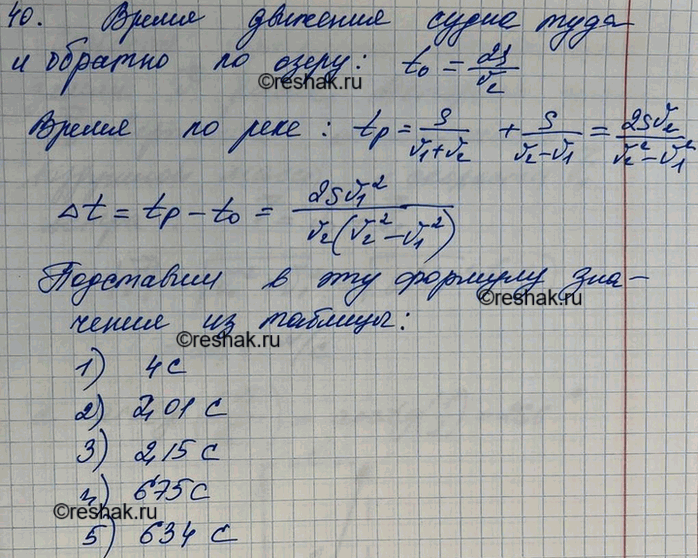 40. Время движения судна туда
и обратно по озеру: t₀ = 2S/v₂
©reshak.ru
Время по реке: tр = S/(v₁+v₂) + S/(v₂-v₁) = 2Sv₂/(v₂²-v₁²)
Δt = tр - t₀ = 2Sv₁²/(v₂(v₂²-v₁²))
Подставим в эту формулу зна-
©reshak.ru
чения из таблицы:
©reshak.ru
1) 4 с
2) 2,01 с
3) 2,15 с
4) 675 с
©reshak.ru
5) 634 с